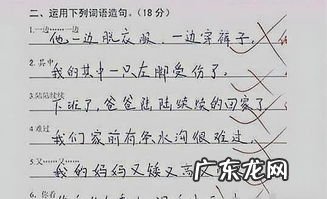 二、运用下列词语造句。(18分)
1.一边……一边
他一边脱衣服,一边穿裤子。
2. 其中
我的其中一只左脚受伤了。
3.陆陆续续
下班了,爸爸陆陆续续的回家了
4 难过
我们家门前有条水沟很难过。
5.又……又……
我的妈妈又矮又高又
6. 你看
广东龙网